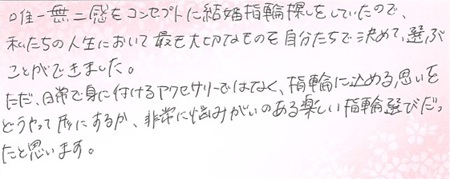 唯一無二感をコンセプトに結婚指輪探しをしていたので、
私たちの人生において最も大切なものを自分たちで決めて、選ぶ
ことができました。
ただ、日常で身に付けるアクセサリーではなく、指輪に込める思いを
どうやって形にするか、非常に悩みがいのある楽しい指輪選びだっ
たと思います。